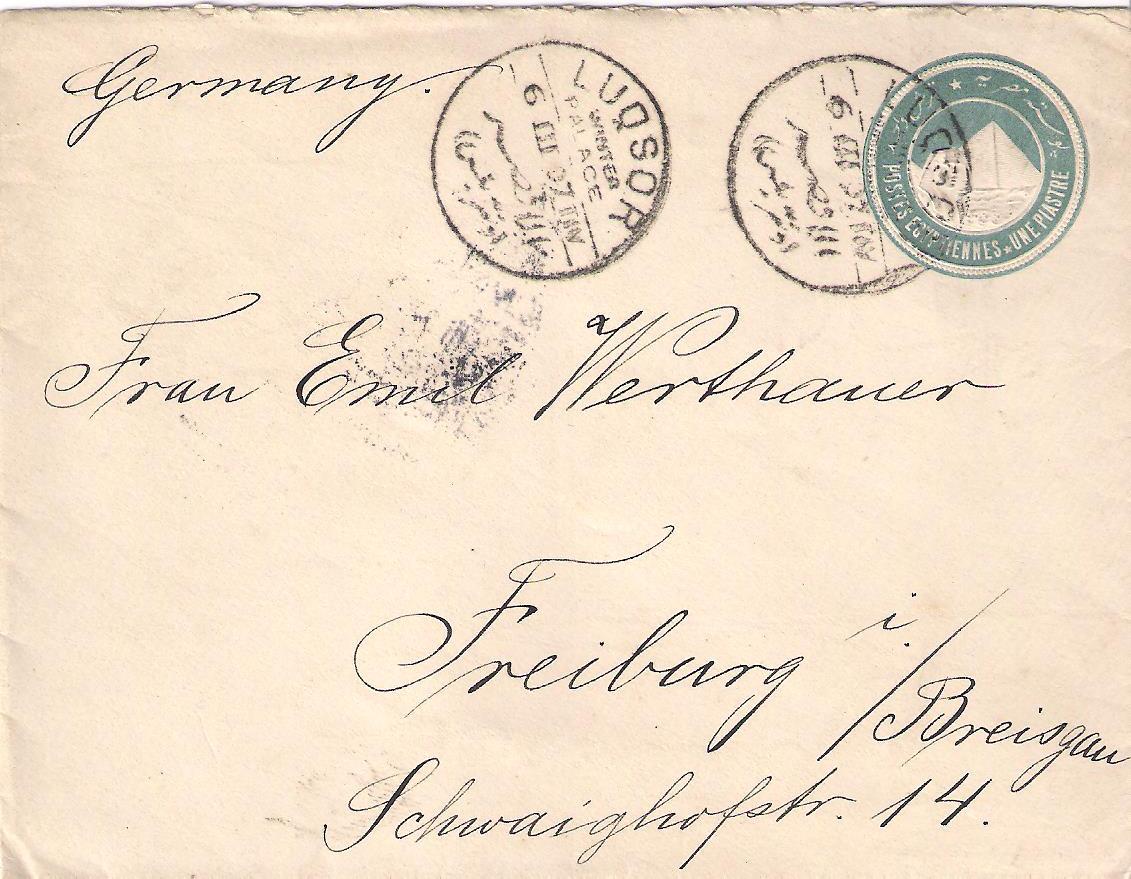 Germany.
LUQSOR
WINTER
PALACE
6 III 07
LUQSOR
6 III
POSTES EGYPTIENNES. UNE PIASTRE
Frau Emil Werthauer
Freiburg i./Breisgau
Schwaighofstr. 14.